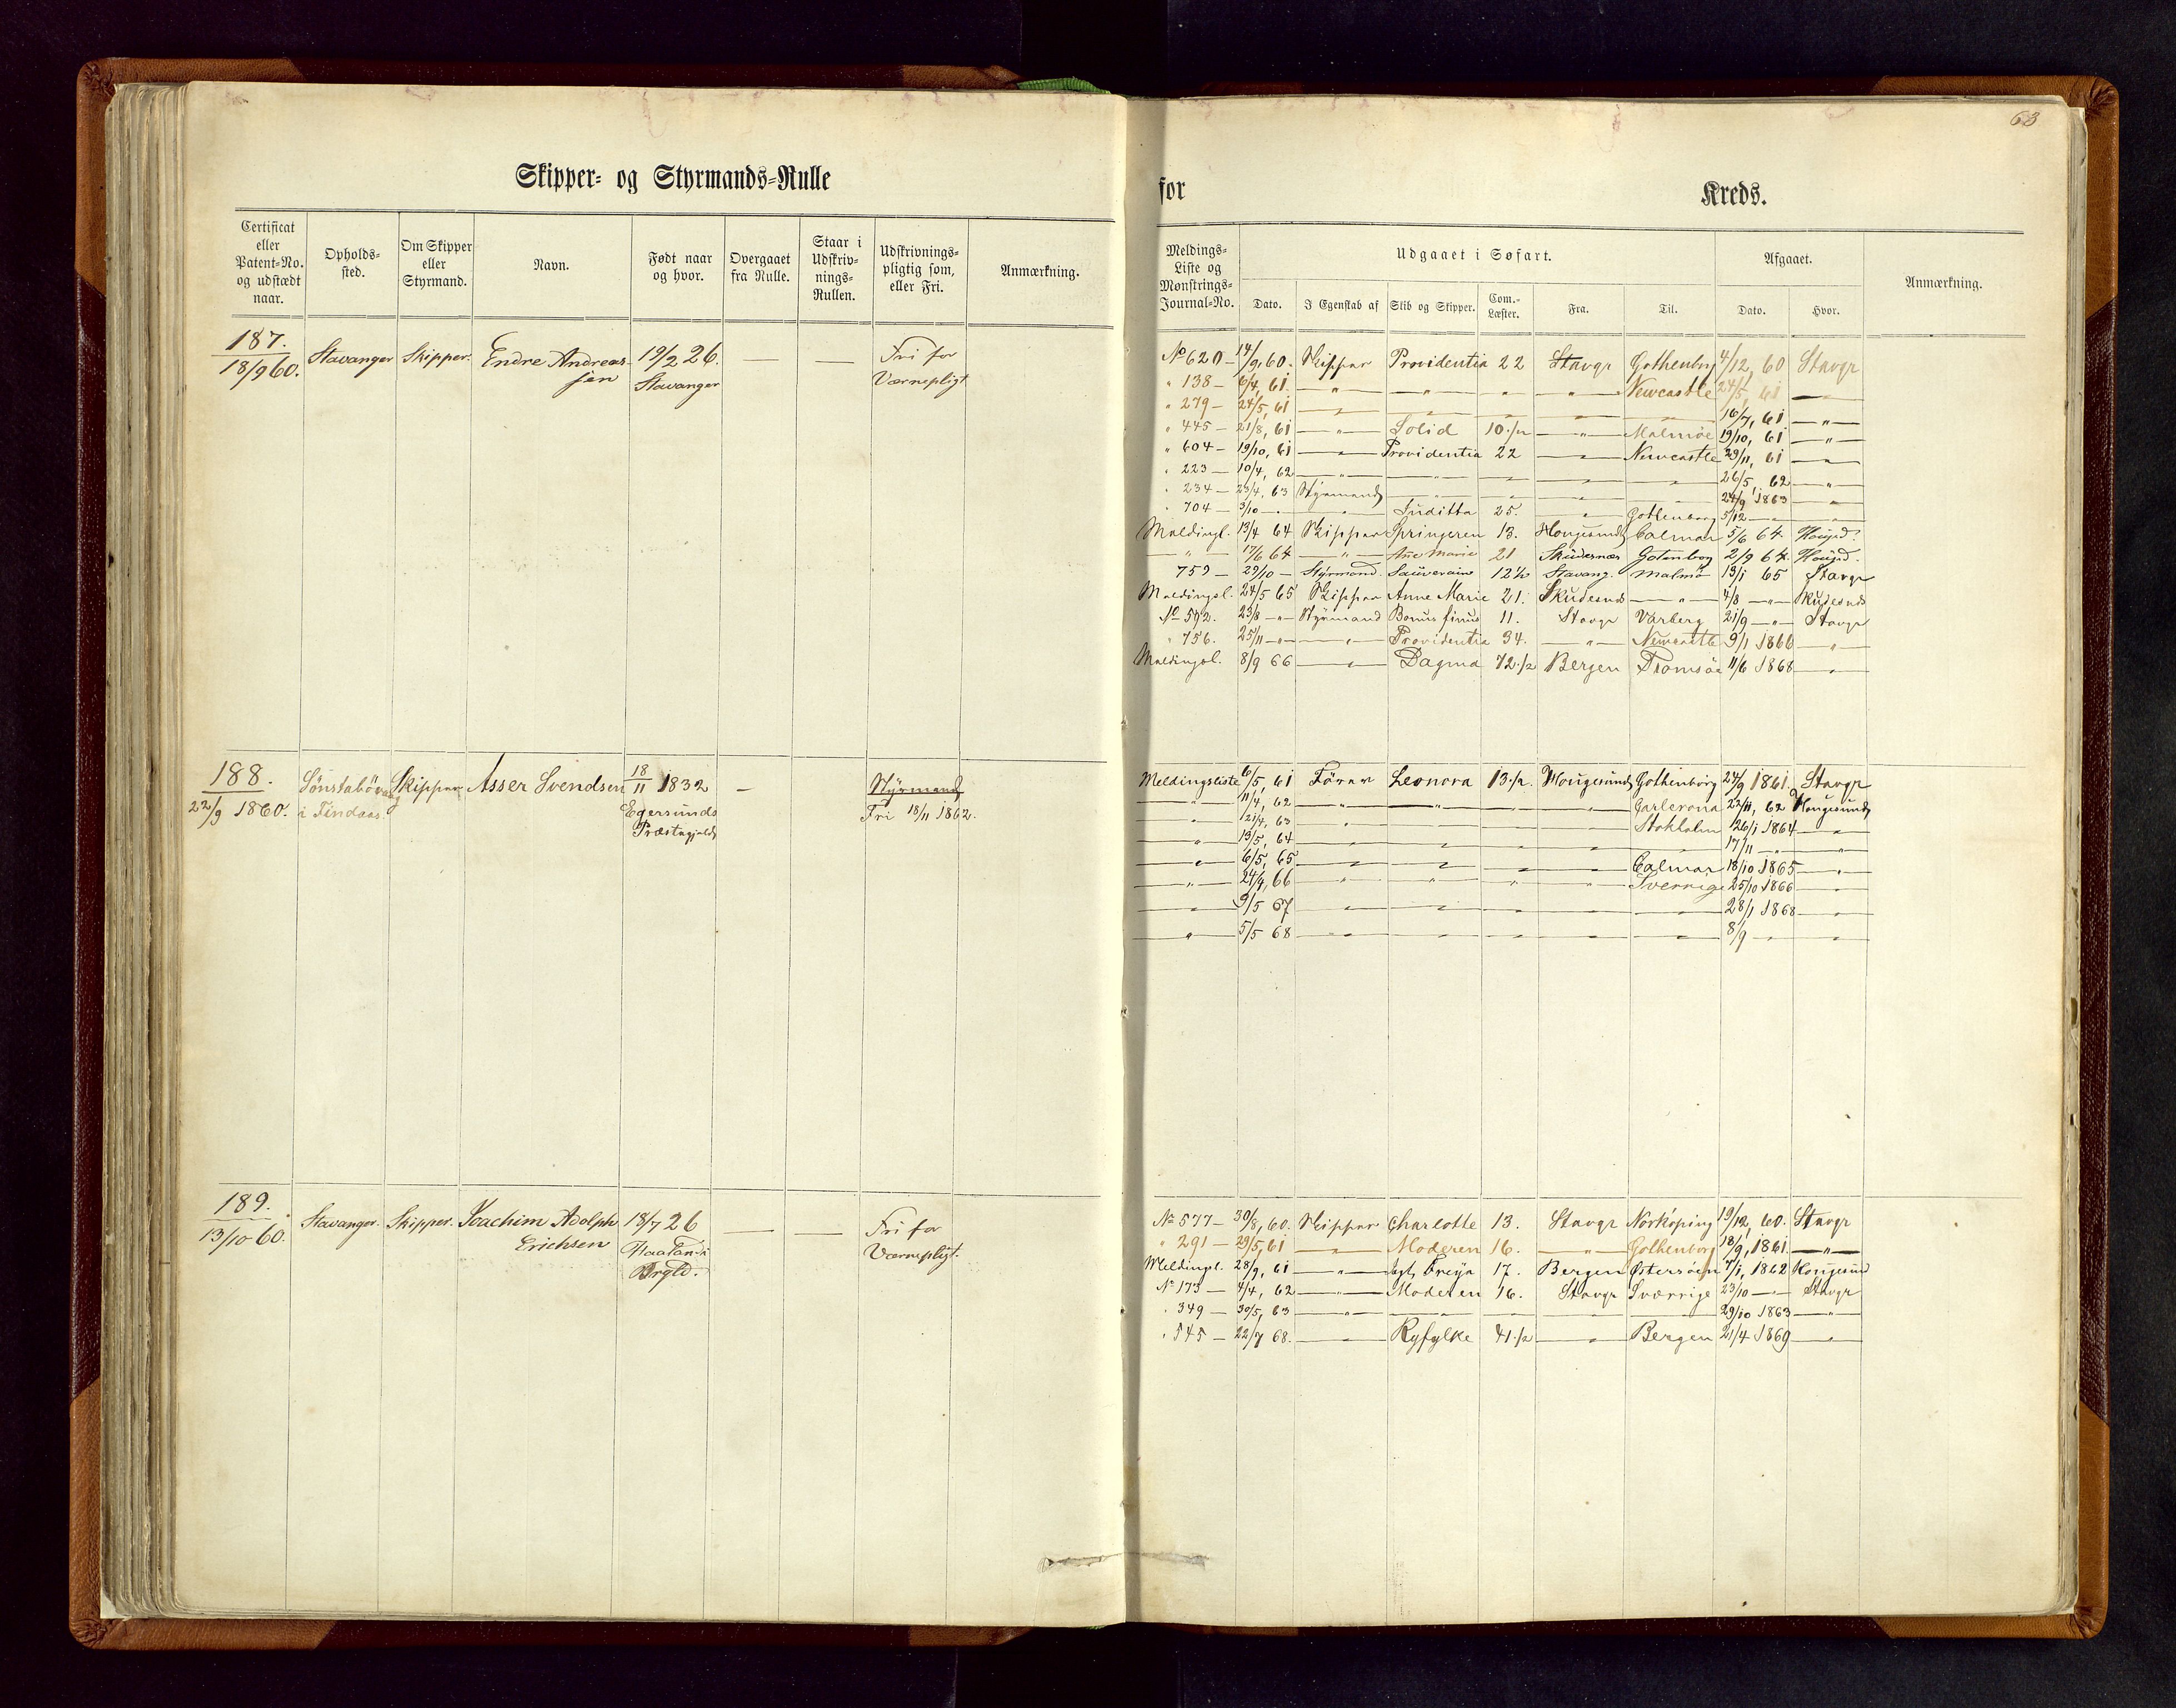 Skipper- og Styrmands-Rulle
Certificat eller Patent-No. og udstædt naar.
Opholds-sted.
Om Skipper eller Styrmand.
Navn.
Født naar og hvor.
Overgaaet fra Rulle.
Staar i Udskriv-nings-Rullen.
Udskrivnings-pligtig som, eller Fri.
Anmærkning.
187. Stavanger Skipper. Endre Andreas- 19/2 26. — — Fri for
18/9 60. sen Stavanger Værnepligt
188. Skipper Asser Svendsen 18/11 1832 — Styrmand
22/9 1860. i Findaas. Egersunds Fri 18/11 1862.
Præstegjeld
189. Stavanger. Skipper. Joachim Adolph 18/7 26 — — Fri for
13/10 60. Erichsen Haalands Værnepligt.
Prgld.
63
for Kreds.
Meldings-Liste og Mønstrings-Journal-No.
Udgaaet i Søfart.
Afgaaet.
Anmærkning.
Dato. I Egenskab af Skib og Skipper. Com.-Læster. Fra. Til. Dato. Hvor.
No 620 — 14/9, 60. Skipper Providentia 22 Stavgr Gothenborg 4/12, 60 Stavgr
" 138 — 6/4, 61. — " — — " — " — " — Newcastle 24/5, 61 — " —
" 279 — 24/5, 61 — " — — " — — " — — " — — " — 16/7, 61 — " —
" 445 — 21/8, 61 — " — Solid 10 1/2 — " — Malmöe 19/10, 61 — " —
" 604 — 19/10, 61 — " — Providentia 22 — " — Newcastle 29/11, 61 — " —
" 223 — 10/4, 62 — " — — " — — " — — " — — " — 26/5 62 — " —
" 234 — 23/4, 63 Styrmand — " — — " — — " — — " — 24/9 1863 — " —
" 704 — 3/10 — " — — " — Juditta 25. — " — Gothenborg 5/12 — " — — " —
Meldingl. 13/4 64 Skipper Springeren 13. Hougesund Calmar 5/6 64. Hougsd.
— " — 17/6 64 — " — Ane Marie 21 Skudesnæs Gotenborg 2/9 64. Hougsd.
759 — 29/10 — Styrmand. Sauverain 12 1/2 Stavang. Malmø 13/1 65 Stavgr
Meldingsl. 24/5 65 Skipper Anne Marie 21. Skudesnæs — " — 4/8 — " — Skudesnæs
No 592. 23/8 — " — Styrmand Bonus finus 11. Stavgr Varberg 21/9 — " — Stavgr
" 756. 25/11 — " — — " — Providentia 34. — " — Newcastle 9/1 1866 — " —
Meldingsl. 8/9 66 — " — Dagmar 72 1/2 Bergen Tromsöe 11/6 1868 — " —
Meldingsliste 6/5, 61 Förer Leonora 13 1/2. Hougesund Gothenborg 24/9 1861. Stavgr
— " — 11/4, 62 — " — — " — — " — — " — Carlcrona 22/11, 62 Hougesund
— " — 21/4, 63 — " — — " — — " — — " — Stokholm 26/1 1864 — " —
— " — 13/5, 64 — " — — " — — " — — " — — " — 17/11 — " — — " —
— " — 6/5, 65 — " — — " — — " — — " — Calmar 18/10 1865 — " —
— " — 24/4, 66 — " — — " — — " — — " — Sverrige 25/10 1866 — " —
— " — 9/5 67 — " — — " — — " — — " — — " — 28/1 1868 — " —
— " — 5/5 68 — " — — " — — " — — " — — " — 8/9 — " — — " —
No 577 — 30/8, 60. Skipper Charlotte 13. Stavgr Norköping 19/12, 60. Stavgr
" 291 — 29/5, 61 — " — Moderen 16. — " — Gothenborg 18/9, 1861. — " —
Meldingl. 28/9, 61 — " — Freya 17. Bergen Østersöen 7/1, 1862 Hougesund
No 173 — 4/4, 62 — " — Moderen 16. Stavgr Sværrige 23/10 — " — Stavgr
" 349 — 30/5, 63 — " — — " — — " — — " — — " — 29/10 1863 — " —
" 545 — 22/7 68. — " — Ryfylke 41 1/2 — " — Bergen 21/4 1869 — " —